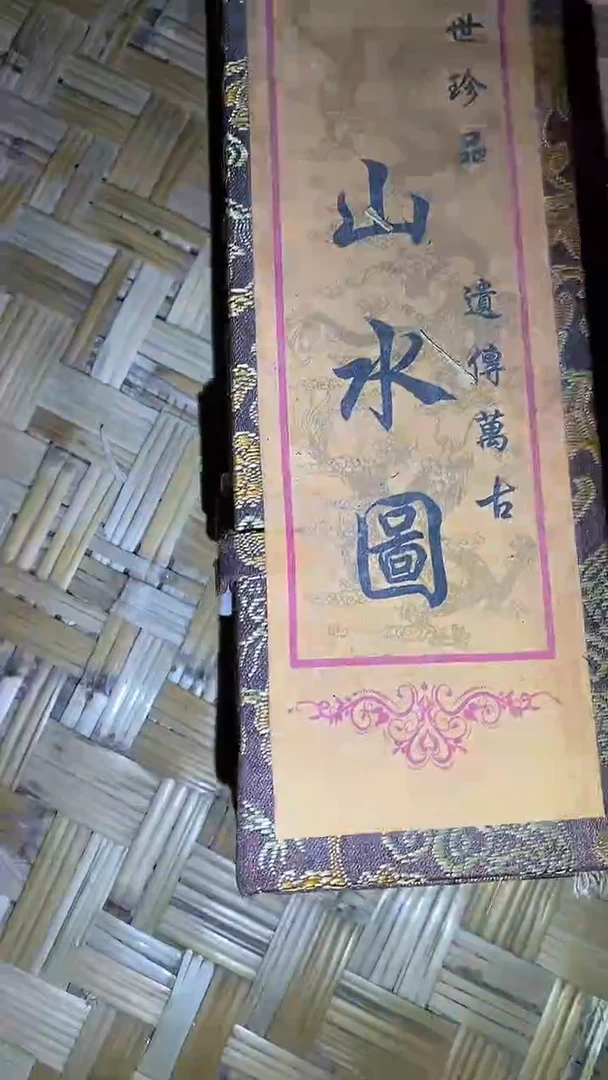 世珍品
遺傳萬古
山水圖